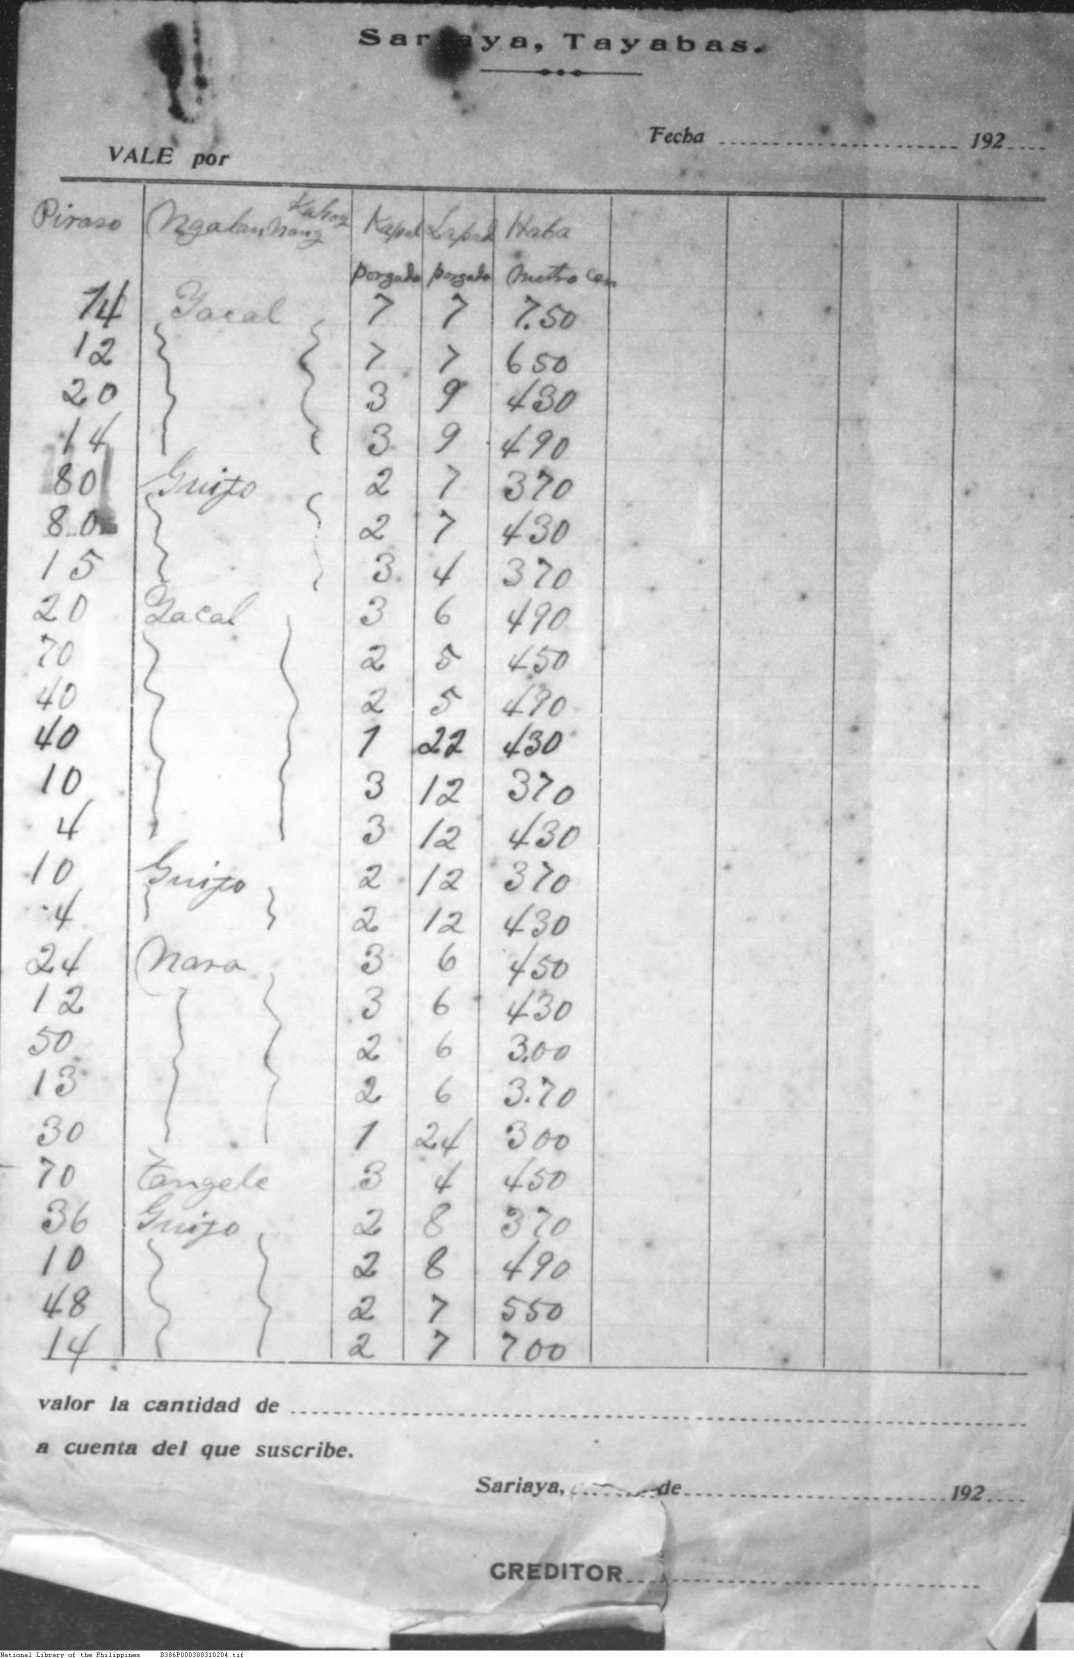 Sariaya, Tayabas.
Fecha 192
VALE por
Piraso Ngalan Nang Kahoy Kapal Lapad Haba
porgada porgada metro cen
14 Yacal 7 7 7.50
12 7 7 650
20 3 9 430
14 3 9 490
80 Guijo 2 7 370
80 2 7 430
15 3 4 370
20 Yacal 3 6 490
70 2 5 450
40 2 5 490
40 1 22 430
10 3 12 370
4 3 12 430
10 Guijo 2 12 370
4 2 12 430
24 Nara 3 6 450
12 3 6 430
50 2 6 3.00
13 2 6 3.70
30 1 24 300
70 Tangele 3 4 450
36 Guijo 2 8 370
10 2 8 490
48 2 7 550
14 2 7 700
valor la cantidad de
a cuenta del que suscribe.
Sariaya, de 192
CREDITOR
National Library of the Philippines B386P000300310204.tif